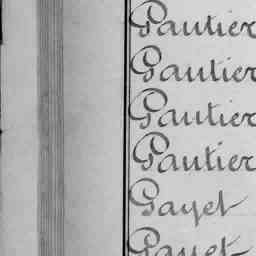 Gautier
Gautier
Gautier
Gautier
Gayet
Gayet